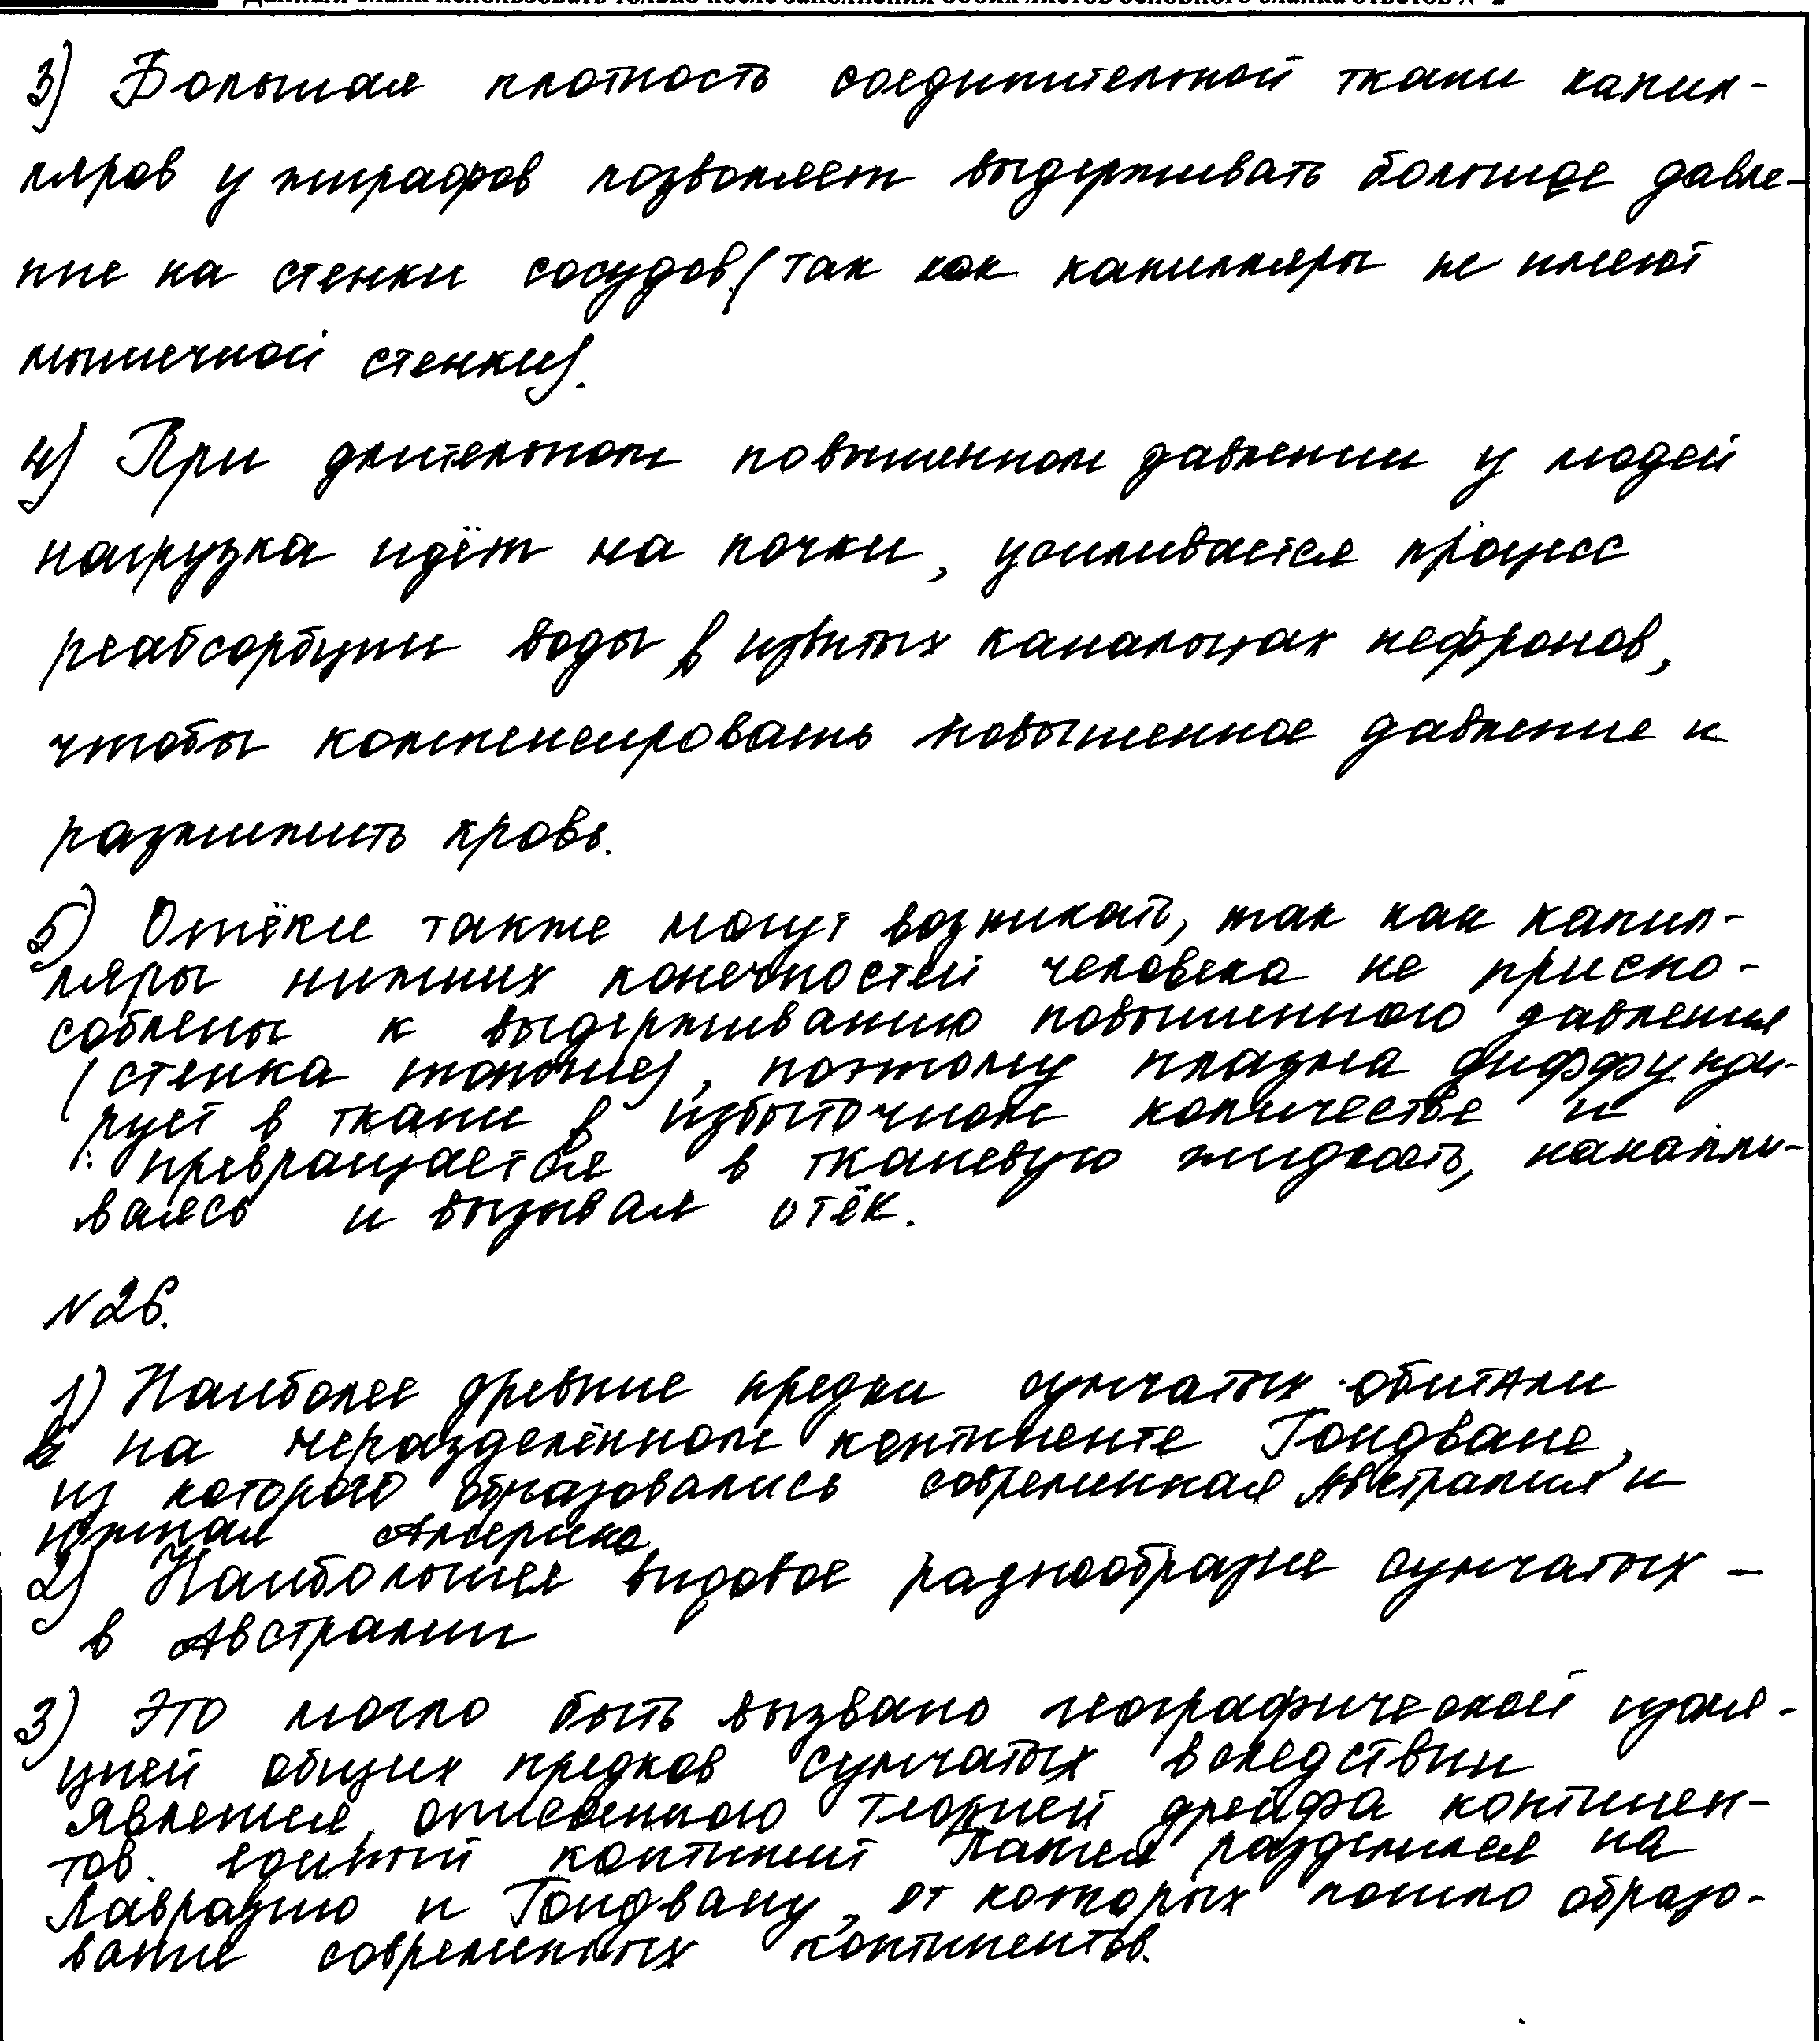 Данный бланк использовать только после заполнения обоих листов основного бланка ответов № 2
3) Большая плотность соединительной ткани капил-
ляров у жирафов позволяет выдерживать большее давле-
ние на стенки сосудов (так как капилляры не имеют
мышечной стенки).
4) При длительном повышенном давлении у людей
нагрузка идёт на почки, усиливается процесс
реабсорбции воды в извитых канальцах нефронов,
чтобы компенсировать повышенное давление и
разжижить кровь.
5) Отёки также могут возникать, так как капил-
ляры нижних конечностей человека не приспо-
соблены к выдерживанию повышенного давления
(стенка тоньше), поэтому плазма диффунди-
рует в ткани в избыточном количестве и
превращается в тканевую жидкость, накапли-
ваясь и вызывая отёк.
№26.
1) Наиболее древние предки сумчатых обитали
на неразделённом континенте Гондване,
из которого образовались современная Австралия и
Южная Америка
2) Наибольшее видовое разнообразие сумчатых –
в Австралии
3) Это могло быть вызвано географической изоля-
цией общих предков сумчатых вследствии
явления, описанного теорией дрейфа континен-
тов. единый континент Пангея разделился на
Лавразию и Гондвану, от которых пошло образо-
вание современных континентов.